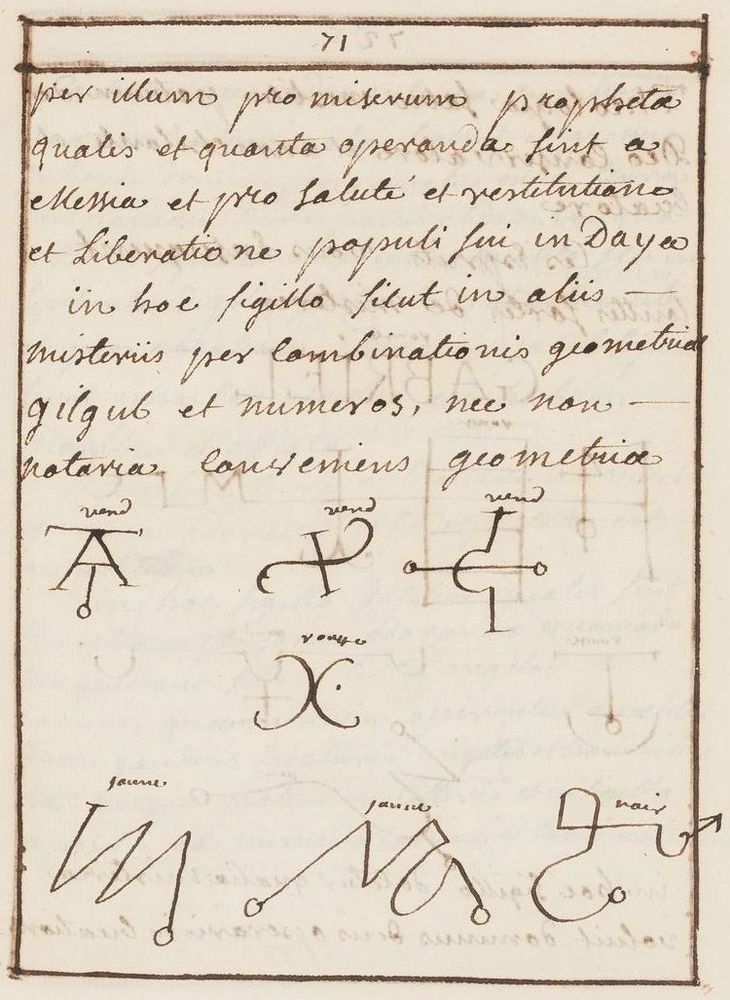 71
per illum pro miserum prophetæ
qualis et quanta operanda sint a
Messia et pro salute et restitutione
et Liberatione populi sui in Dayea
in hoc sigillo sicut in aliis —
misteriis per Combinationis geometriæ
gilgul et numeros, nec non —
notaria Conveniens geometriæ
verd
verd
verd
rouge
jaune
jaune
noir